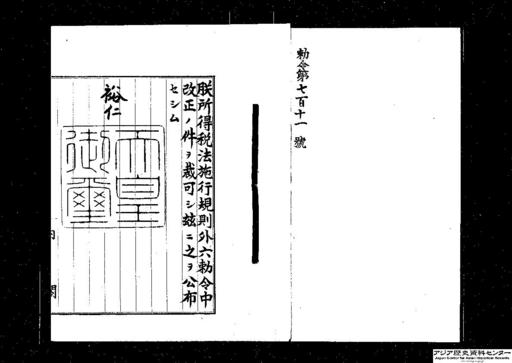 勅令第七百十一號
朕所得税法施行規則外六勅令中
改正ノ件ヲ裁可シ玆ニ之ヲ公布
セシム
裕仁
天皇
御璽
内閣
アジア歴史資料センター
Japan Center for Asian Historical Records